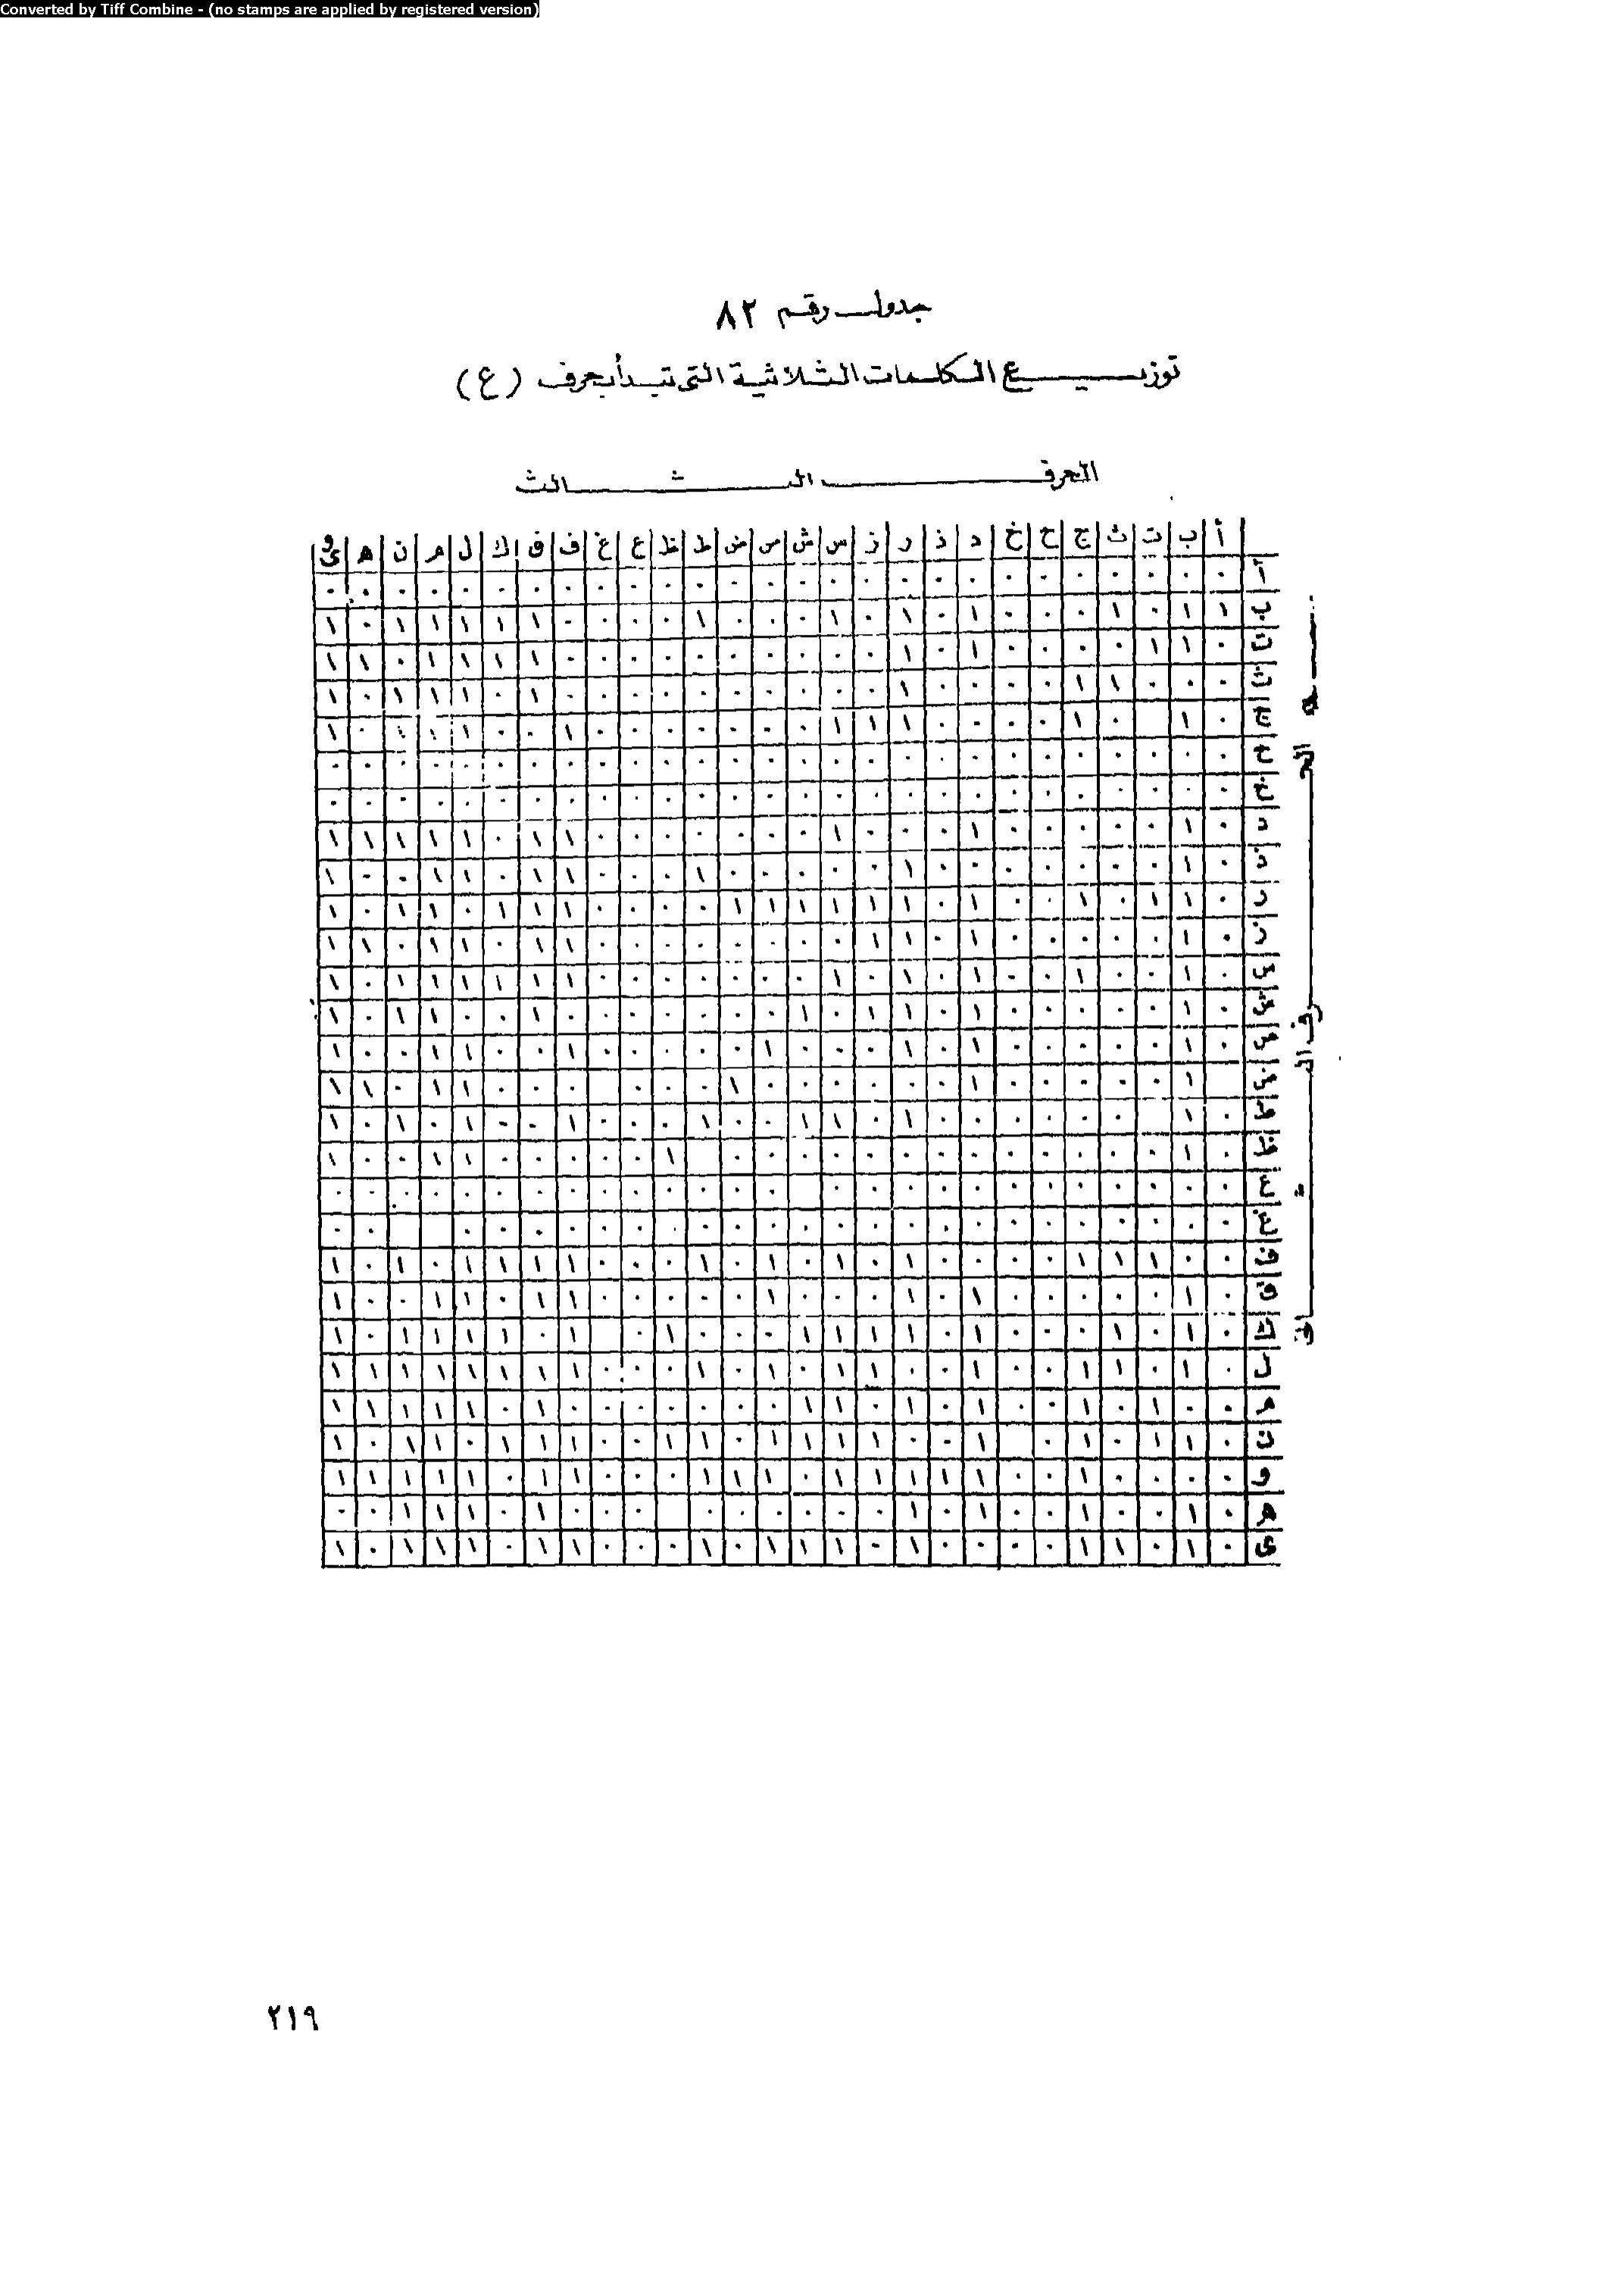 Converted by Tiff Combine - (no stamps are applied by registered version)
جدول رقم ٨٢
توزيع الكلمات الثلاثية التى تبدأ بحرف (ع)
الحرف الثالث
الحرف الثانى
أ ب ت ث ج ح خ د ذ ر ز س ش ص ض ط ظ ع غ ف ق ك ل م ن ه و ى
أ ٠ ٠ ٠ ٠ ٠ ٠ ٠ ٠ ٠ ٠ ٠ ٠ ٠ ٠ ٠ ٠ ٠ ٠ ٠ ٠ ٠ ٠ ٠ ٠ ٠ ٠ ٠
ب ١ ١ ٠ ١ ٠ ٠ ٠ ١ ٠ ١ ٠ ١ ٠ ٠ ٠ ١ ٠ ٠ ٠ ٠ ١ ١ ١ ١ ١ ٠ ١
ت ٠ ١ ١ ٠ ٠ ٠ ٠ ١ ٠ ١ ٠ ٠ ٠ ٠ ٠ ٠ ٠ ٠ ٠ ٠ ١ ١ ١ ١ ٠ ١ ١
ث ٠ ٠ ٠ ١ ١ ٠ ٠ ٠ ٠ ١ ٠ ٠ ٠ ٠ ٠ ٠ ٠ ٠ ٠ ٠ ١ ٠ ١ ١ ١ ٠ ١
ج ٠ ١ ٠ ١ ٠ ٠ ٠ ٠ ١ ١ ١ ٠ ٠ ٠ ٠ ٠ ٠ ٠ ١ ٠ ٠ ١ ١ ١ ٠ ١
ح ٠ ٠ ٠ ٠ ٠ ٠ ٠ ٠ ٠ ٠ ٠ ٠ ٠ ٠ ٠ ٠ ٠ ٠ ٠ ٠ ٠ ٠ ٠ ٠ ٠ ٠ ٠
خ ٠ ٠ ٠ ٠ ٠ ٠ ٠ ٠ ٠ ٠ ٠ ٠ ٠ ٠ ٠ ٠ ٠ ٠ ٠ ٠ ٠ ٠ ٠ ٠ ٠ ٠ ٠
د ٠ ١ ٠ ٠ ٠ ٠ ٠ ١ ٠ ٠ ٠ ١ ٠ ٠ ٠ ٠ ٠ ٠ ٠ ١ ١ ٠ ١ ١ ١ ١ ١
ذ ٠ ١ ٠ ٠ ٠ ٠ ٠ ٠ ٠ ١ ٠ ٠ ٠ ٠ ٠ ١ ٠ ٠ ٠ ١ ١ ٠ ١ ١ ٠ ٠ ١
ر ٠ ١ ١ ٠ ١ ٠ ٠ ١ ٠ ١ ١ ١ ١ ١ ١ ٠ ٠ ٠ ٠ ١ ١ ١ ٠ ١ ١ ٠ ١
ز ٠ ١ ٠ ٠ ٠ ٠ ٠ ١ ٠ ١ ١ ٠ ٠ ٠ ٠ ٠ ٠ ٠ ٠ ١ ١ ٠ ١ ١ ٠ ١ ١
س ٠ ١ ٠ ٠ ١ ٠ ٠ ١ ٠ ١ ٠ ١ ٠ ٠ ٠ ٠ ٠ ٠ ٠ ١ ١ ١ ١ ١ ١ ٠ ١
ش ٠ ١ ٠ ٠ ٠ ٠ ٠ ١ ٠ ١ ١ ٠ ١ ٠ ٠ ٠ ٠ ٠ ٠ ٠ ١ ٠ ٠ ١ ١ ٠ ١
ص ٠ ١ ٠ ٠ ٠ ٠ ٠ ١ ٠ ١ ٠ ٠ ٠ ١ ٠ ٠ ٠ ٠ ٠ ١ ٠ ٠ ١ ١ ٠ ٠ ١
ض ١ ٠ ٠ ٠ ٠ ٠ ١ ٠ ٠ ٠ ٠ ٠ ٠ ١ ٠ ٠ ٠ ٠ ٠ ٠ ٠ ١ ١ ٠ ١ ١
ط ٠ ١ ٠ ٠ ٠ ٠ ٠ ٠ ١ ٠ ١ ١ ٠ ٠ ١ ٠ ٠ ٠ ١ ٠ ٠ ١ ٠ ١ ٠ ١
ظ ٠ ١ ٠ ٠ ٠ ٠ ٠ ٠ ٠ ٠ ٠ ٠ ٠ ٠ ٠ ١ ٠ ٠ ٠ ٠ ٠ ١ ١ ٠ ٠ ١
ع ٠ ٠ ٠ ٠ ٠ ٠ ٠ ٠ ٠ ٠ ٠ ٠ ٠ ٠ ٠ ٠ ٠ ٠ ٠ ٠ ٠ ٠ ٠ ٠ ٠ ٠
غ ٠ ٠ ٠ ٠ ٠ ٠ ٠ ٠ ٠ ٠ ٠ ٠ ٠ ٠ ٠ ٠ ٠ ٠ ٠ ٠ ٠ ٠ ٠ ٠ ٠
ف ٠ ٠ ١ ١ ١ ٠ ٠ ٠ ٠ ١ ٠ ١ ٠ ١ ٠ ١ ٠ ٠ ٠ ١ ١ ١ ١ ٠ ١ ٠ ١
ق ٠ ١ ٠ ٠ ٠ ٠ ٠ ١ ٠ ١ ٠ ٠ ٠ ١ ٠ ٠ ٠ ٠ ٠ ١ ١ ٠ ١ ١ ٠ ٠ ١
ك ٠ ١ ٠ ١ ٠ ٠ ٠ ١ ٠ ١ ١ ١ ١ ٠ ٠ ٠ ١ ٠ ١ ٠ ١ ١ ١ ١ ٠ ١
ل ٠ ١ ٠ ١ ١ ٠ ٠ ١ ٠ ٠ ١ ١ ٠ ١ ٠ ١ ٠ ٠ ٠ ١ ١ ١ ١ ١ ١ ١ ١
م ٠ ٠ ١ ٠ ١ ٠ ٠ ١ ٠ ١ ٠ ١ ١ ٠ ٠ ٠ ٠ ٠ ٠ ٠ ١ ٠ ١ ١ ١ ١ ١
ن ٠ ١ ١ ٠ ١ ٠ ١ ٠ ٠ ١ ١ ١ ١ ٠ ١ ١ ٠ ٠ ١ ١ ١ ٠ ١ ١ ٠ ١
و ٠ ٠ ٠ ٠ ١ ٠ ٠ ١ ١ ١ ١ ١ ٠ ١ ١ ١ ٠ ٠ ٠ ١ ١ ٠ ١ ١ ١ ١ ١
ه ٠ ١ ٠ ٠ ١ ٠ ٠ ١ ٠ ١ ٠ ٠ ٠ ٠ ٠ ٠ ٠ ٠ ٠ ١ ٠ ١ ١ ١ ٠ ٠
ى ٠ ١ ٠ ١ ١ ٠ ٠ ٠ ٠ ١ ٠ ١ ١ ١ ٠ ١ ٠ ٠ ٠ ١ ١ ٠ ١ ١ ١ ٠ ١
٢١٩